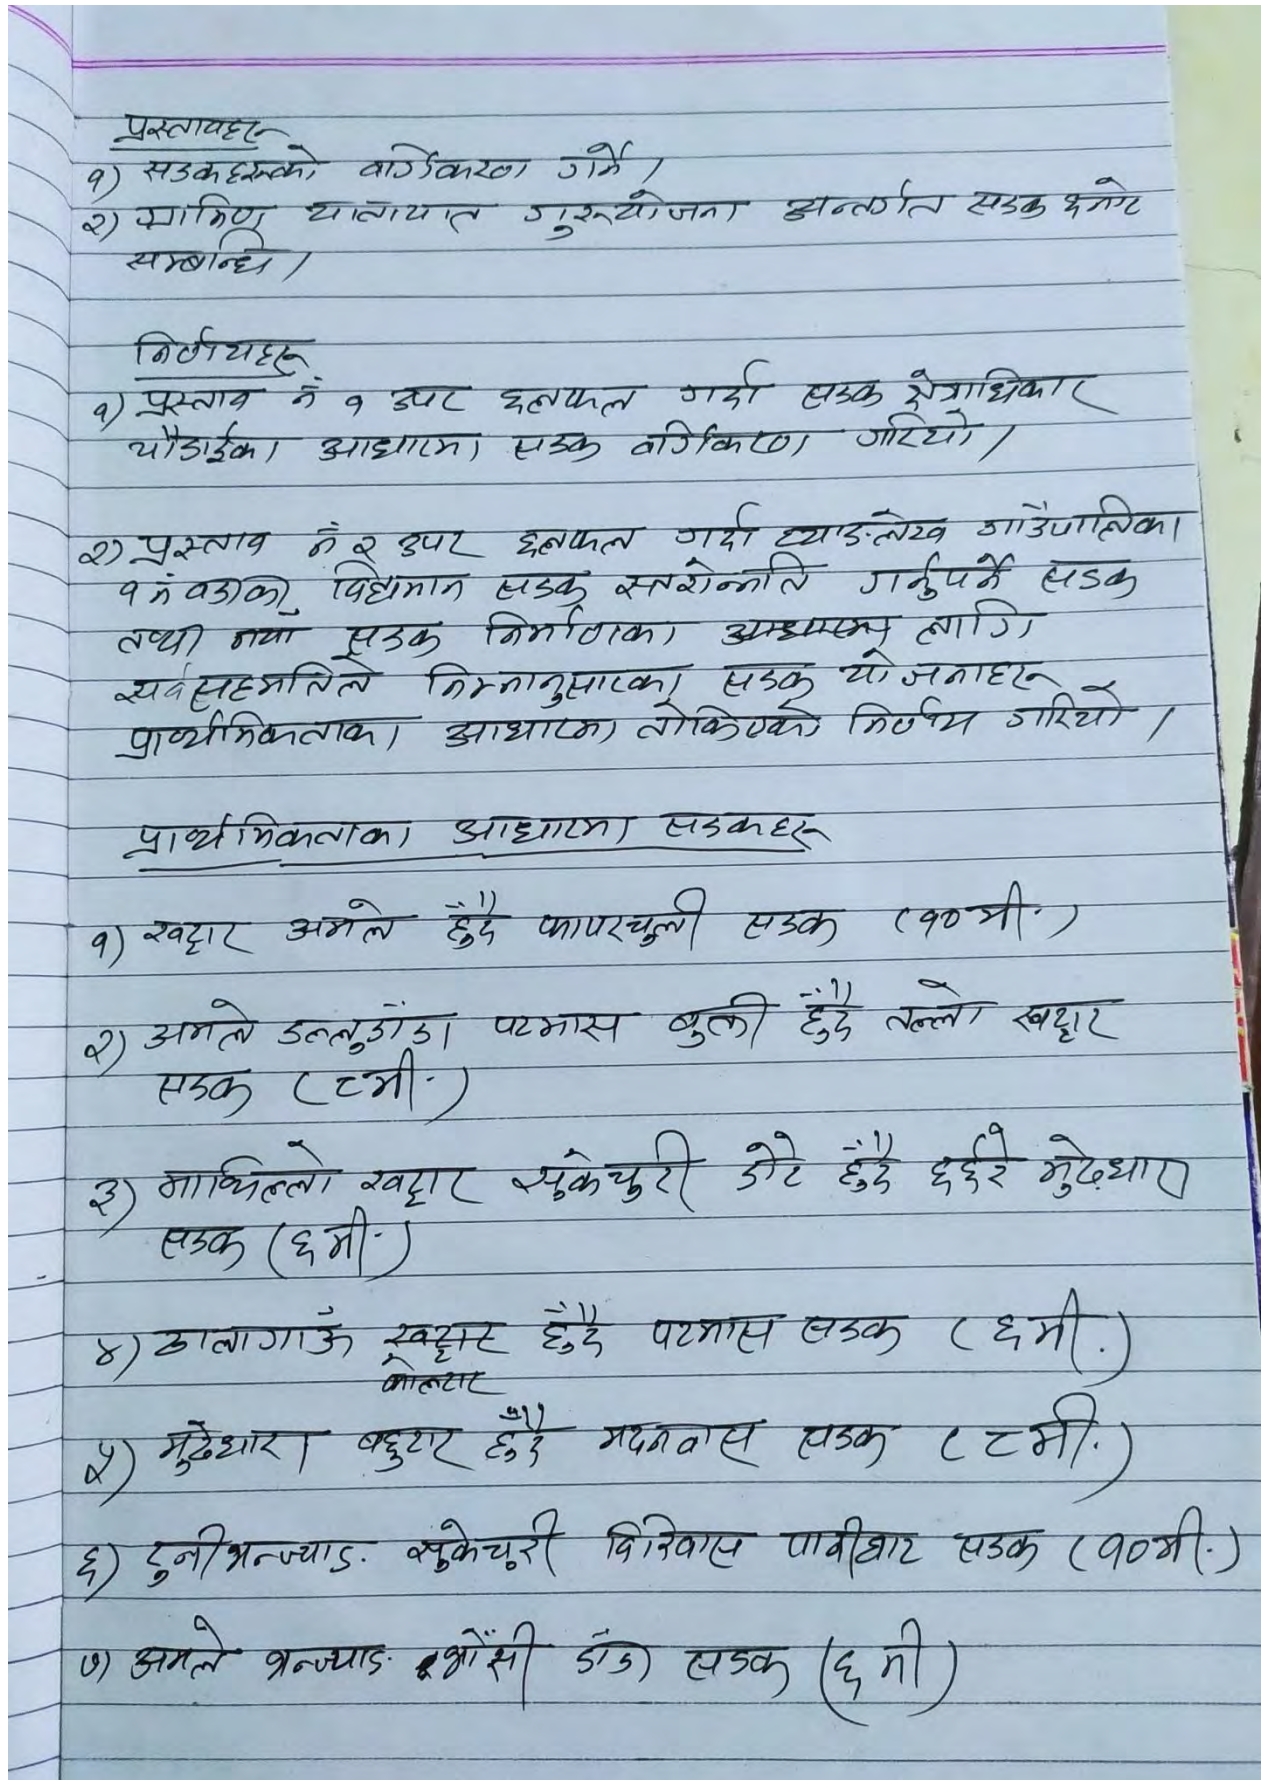 प्रस्तावहरू
१) सडकहरूको वर्गिकरण गर्ने ।
२) ग्रामिण यातायात गुरूयोजना अन्तर्गत सडक छनोट
सम्बन्धि ।
निर्णयहरू
१) प्रस्ताव नं १ उपर छलफल गर्दा सडक क्षेत्राधिकार
चौडाईका आधारमा सडक वर्गिकरण गरियो ।
२) प्रस्ताव नं २ उपर छलफल गर्दा घ्याङलेख गाउँपालिका
१ नं वडाका विद्यमान सडक स्तरोन्नति गर्नुपर्ने सडक
तथा नयाँ सडक निर्माणका लागि
सर्वसहमतिले निम्नानुसारका सडक योजनाहरू
प्राथमिकताका आधारमा तोकिएको निर्णय गरियो ।
प्राथमिकताका आधारमा सडकहरू
१) खट्टार अमले हुँदै कापरचुली सडक (१० मी.)
२) अमले डल्लुडाँडा पटमास बुकी हुँदै तल्लो खट्टार
सडक (८ मी.)
३) माथिल्लो खट्टार सुकेचुरी डोटे हुँदै दर्ईरे मुढेधारा
सडक (६ मी.)
४) ठालागाऊँ खट्टार हुँदै पटमास सडक (६ मी.)
कोल्टार
५) मुढेधारा बहुटार हुँदै मदनवास सडक (८ मी.)
६) दुनीभन्ज्याङ सुकेचुरी सडक (१० मी.)
७) अमले भन्ज्याङ भोँसी डाँडा सडक (६ मी)